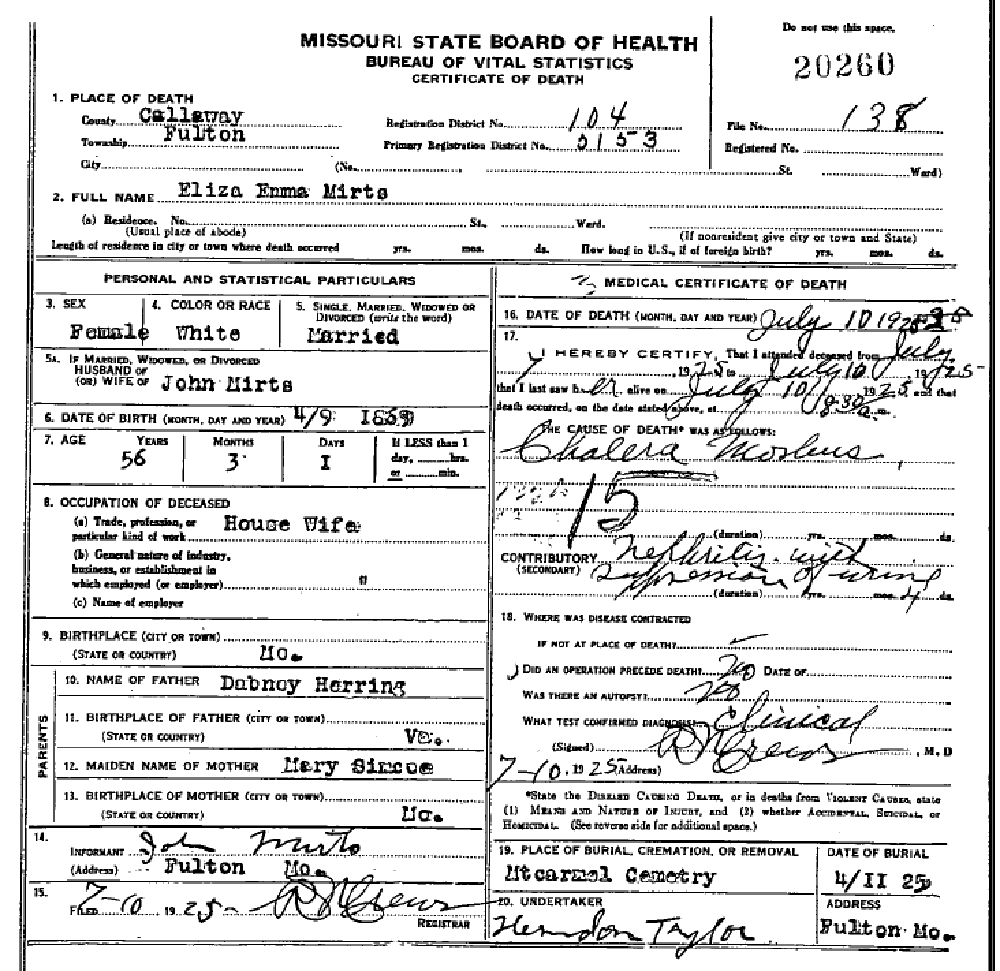 Do not use this space.
MISSOURI STATE BOARD OF HEALTH
BUREAU OF VITAL STATISTICS
CERTIFICATE OF DEATH
20260
1. PLACE OF DEATH
County Callaway
Registration District No. 104
File No. 138
Township Fulton
Primary Registration District No. 0153
Registered No.
City (No. St. Ward)
2. FULL NAME Eliza Emma Mirts
(a) Residence. No. St., Ward.
(Usual place of abode) (If nonresident give city or town and State)
Length of residence in city or town where death occurred yrs. mos. ds. How long in U.S., if of foreign birth? yrs. mos. ds.
PERSONAL AND STATISTICAL PARTICULARS
3. SEX 4. COLOR OR RACE 5. SINGLE, MARRIED, WIDOWED OR
DIVORCED (write the word)
Female White Married
5A. IF MARRIED, WIDOWED, OR DIVORCED
HUSBAND OF
(OR) WIFE OF John Mirts
6. DATE OF BIRTH (MONTH, DAY AND YEAR) 4/9
7. AGE YEARS MONTHS DAYS If LESS than 1
day, hrs.
or min.
56 3 I
8. OCCUPATION OF DECEASED
(a) Trade, profession, or
particular kind of work House Wife
(b) General nature of industry,
business, or establishment in
which employed (or employer) "
(c) Name of employer
9. BIRTHPLACE (CITY OR TOWN)
(STATE OR COUNTRY) Mo.
PARENTS
10. NAME OF FATHER Dabney Herring
11. BIRTHPLACE OF FATHER (CITY OR TOWN)
(STATE OR COUNTRY) Va.
12. MAIDEN NAME OF MOTHER Mary Simcoe
13. BIRTHPLACE OF MOTHER (CITY OR TOWN)
(STATE OR COUNTRY) Mo.
14.
INFORMANT John Mirts
(Address) Fulton Mo.
15.
FILED 7-10, 1925- RNCrews
REGISTRAR
MEDICAL CERTIFICATE OF DEATH
16. DATE OF DEATH (MONTH, DAY AND YEAR) July 10 1925
17.
I HEREBY CERTIFY, That I attended deceased from July
, 1925 to July 10, 1925-
that I last saw her alive on July 10, 1925, and that
death occurred, on the date stated above, at 8:30 a.
THE CAUSE OF DEATH* WAS AS FOLLOWS:
Chalera Morbus,
15
(duration) yrs. mos. ds.
CONTRIBUTORY Nephritis with
(SECONDARY) suppression of urine
(duration) yrs. mos. 4 ds.
18. WHERE WAS DISEASE CONTRACTED
IF NOT AT PLACE OF DEATH? -
DID AN OPERATION PRECEDE DEATH? No DATE OF
WAS THERE AN AUTOPSY? no
WHAT TEST CONFIRMED DIAGNOSIS? Clinical
(Signed) RNCrews, M.D
7-10, 1925 (Address)
*State the DISEASE CAUSING DEATH, or in deaths from VIOLENT CAUSES, state
(1) MEANS AND NATURE OF INJURY, and (2) whether ACCIDENTAL, SUICIDAL, or
HOMICIDAL. (See reverse side for additional space.)
19. PLACE OF BURIAL, CREMATION, OR REMOVAL DATE OF BURIAL
Mtcarmel Cemetry 4/II 25
20. UNDERTAKER ADDRESS
Herndon Taylor Fulton Mo.